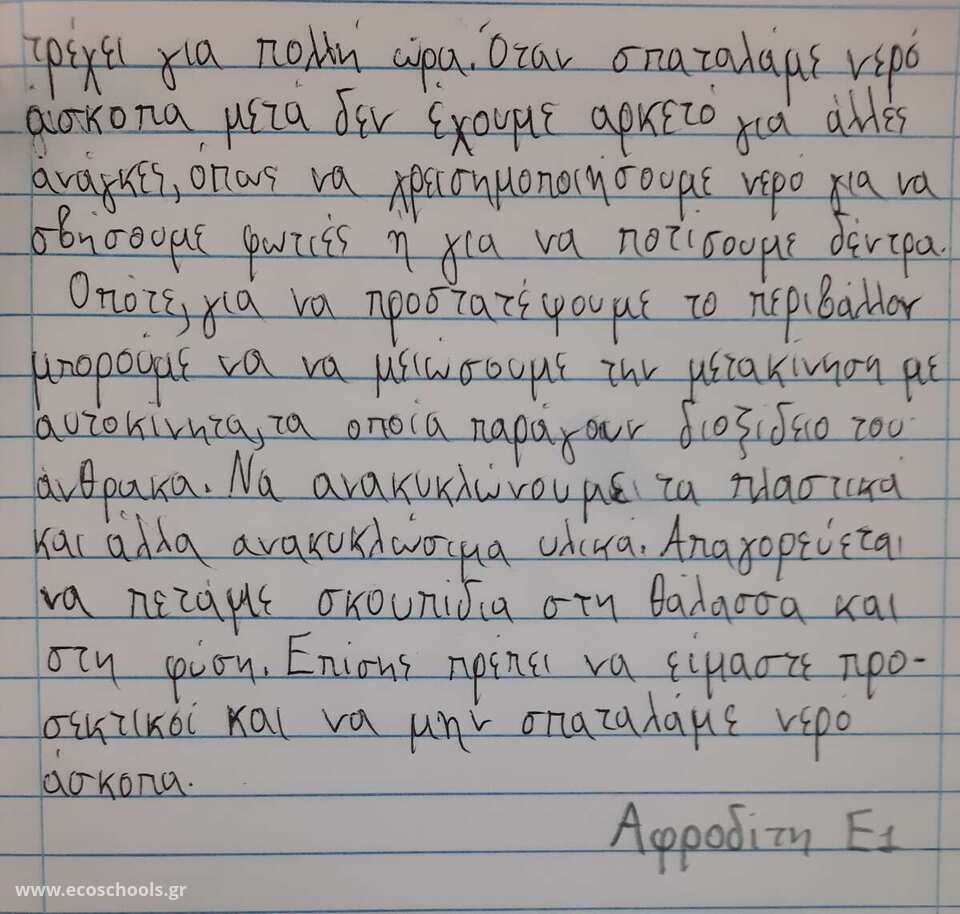 τρέχει για πολλή ώρα. Όταν σπαταλάμε νερό
άσκοπα μετά δεν έχουμε αρκετό για άλλες
ανάγκες, όπως να χρεισημοποιήσουμε νερό για να
σβήσουμε φωτιές ή για να ποτίσουμε δέντρα.
Οπότε, για να προστατέψουμε το περιβάλλον
μπορούμε να να μειώσουμε την μετακίνηση με
αυτοκίνητα, τα οποία παράγουν διοξίδειο του
άνθρακα. Να ανακυκλώνουμε τα πλαστικά
και άλλα ανακυκλώσιμα υλικά. Απαγορεύεται
να πετάμε σκουπίδια στη θάλασσα και
στη φύση. Επίσης πρέπει να είμαστε προ-
σεκτικοί και να μην σπαταλάμε νερό
άσκοπα.
Αφροδίτη Ε1
www.ecoschools.gr